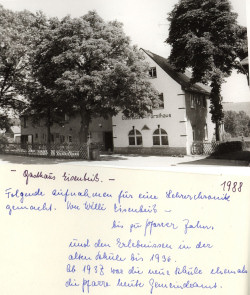 - Gasthaus Eisenbeiß. -
1988
Folgende Aufnahmen für eine Lehrerchronik
gemacht. Von Willi Eisenbeiß -
bis zu Pfarrer Jahrs
und den Erlebnissen in der
alten Schule bis 1936.
Ab 1937 war die neue Schule ehemals
die Pfarre heute Gemeindeamt.